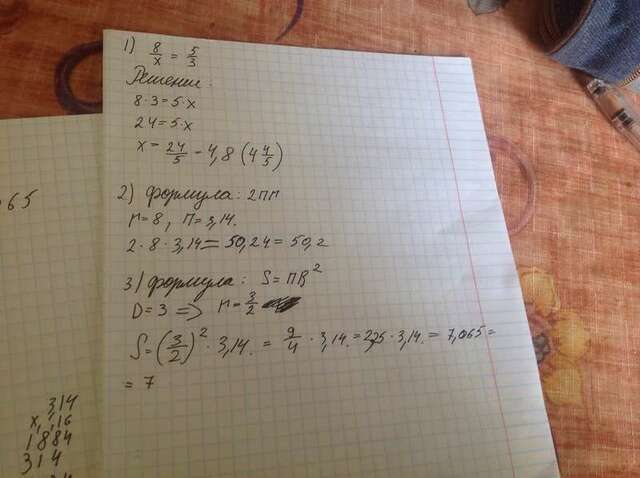 1) 8/x = 5/3
Решение:
8·3=5·x
24=5·x
x = 24/5 = 4,8 (4 4/5)
2) формула: 2πr
r=8, π=3,14.
2·8·3,14=50,24=50,2
3) формула: S=πR²
D=3 => r=3/2
S=(3/2)²·3,14. = 9/4 · 3,14. = 2,25 · 3,14. = 7,065 =
= 7
065
3,14
x,,16
1884
314